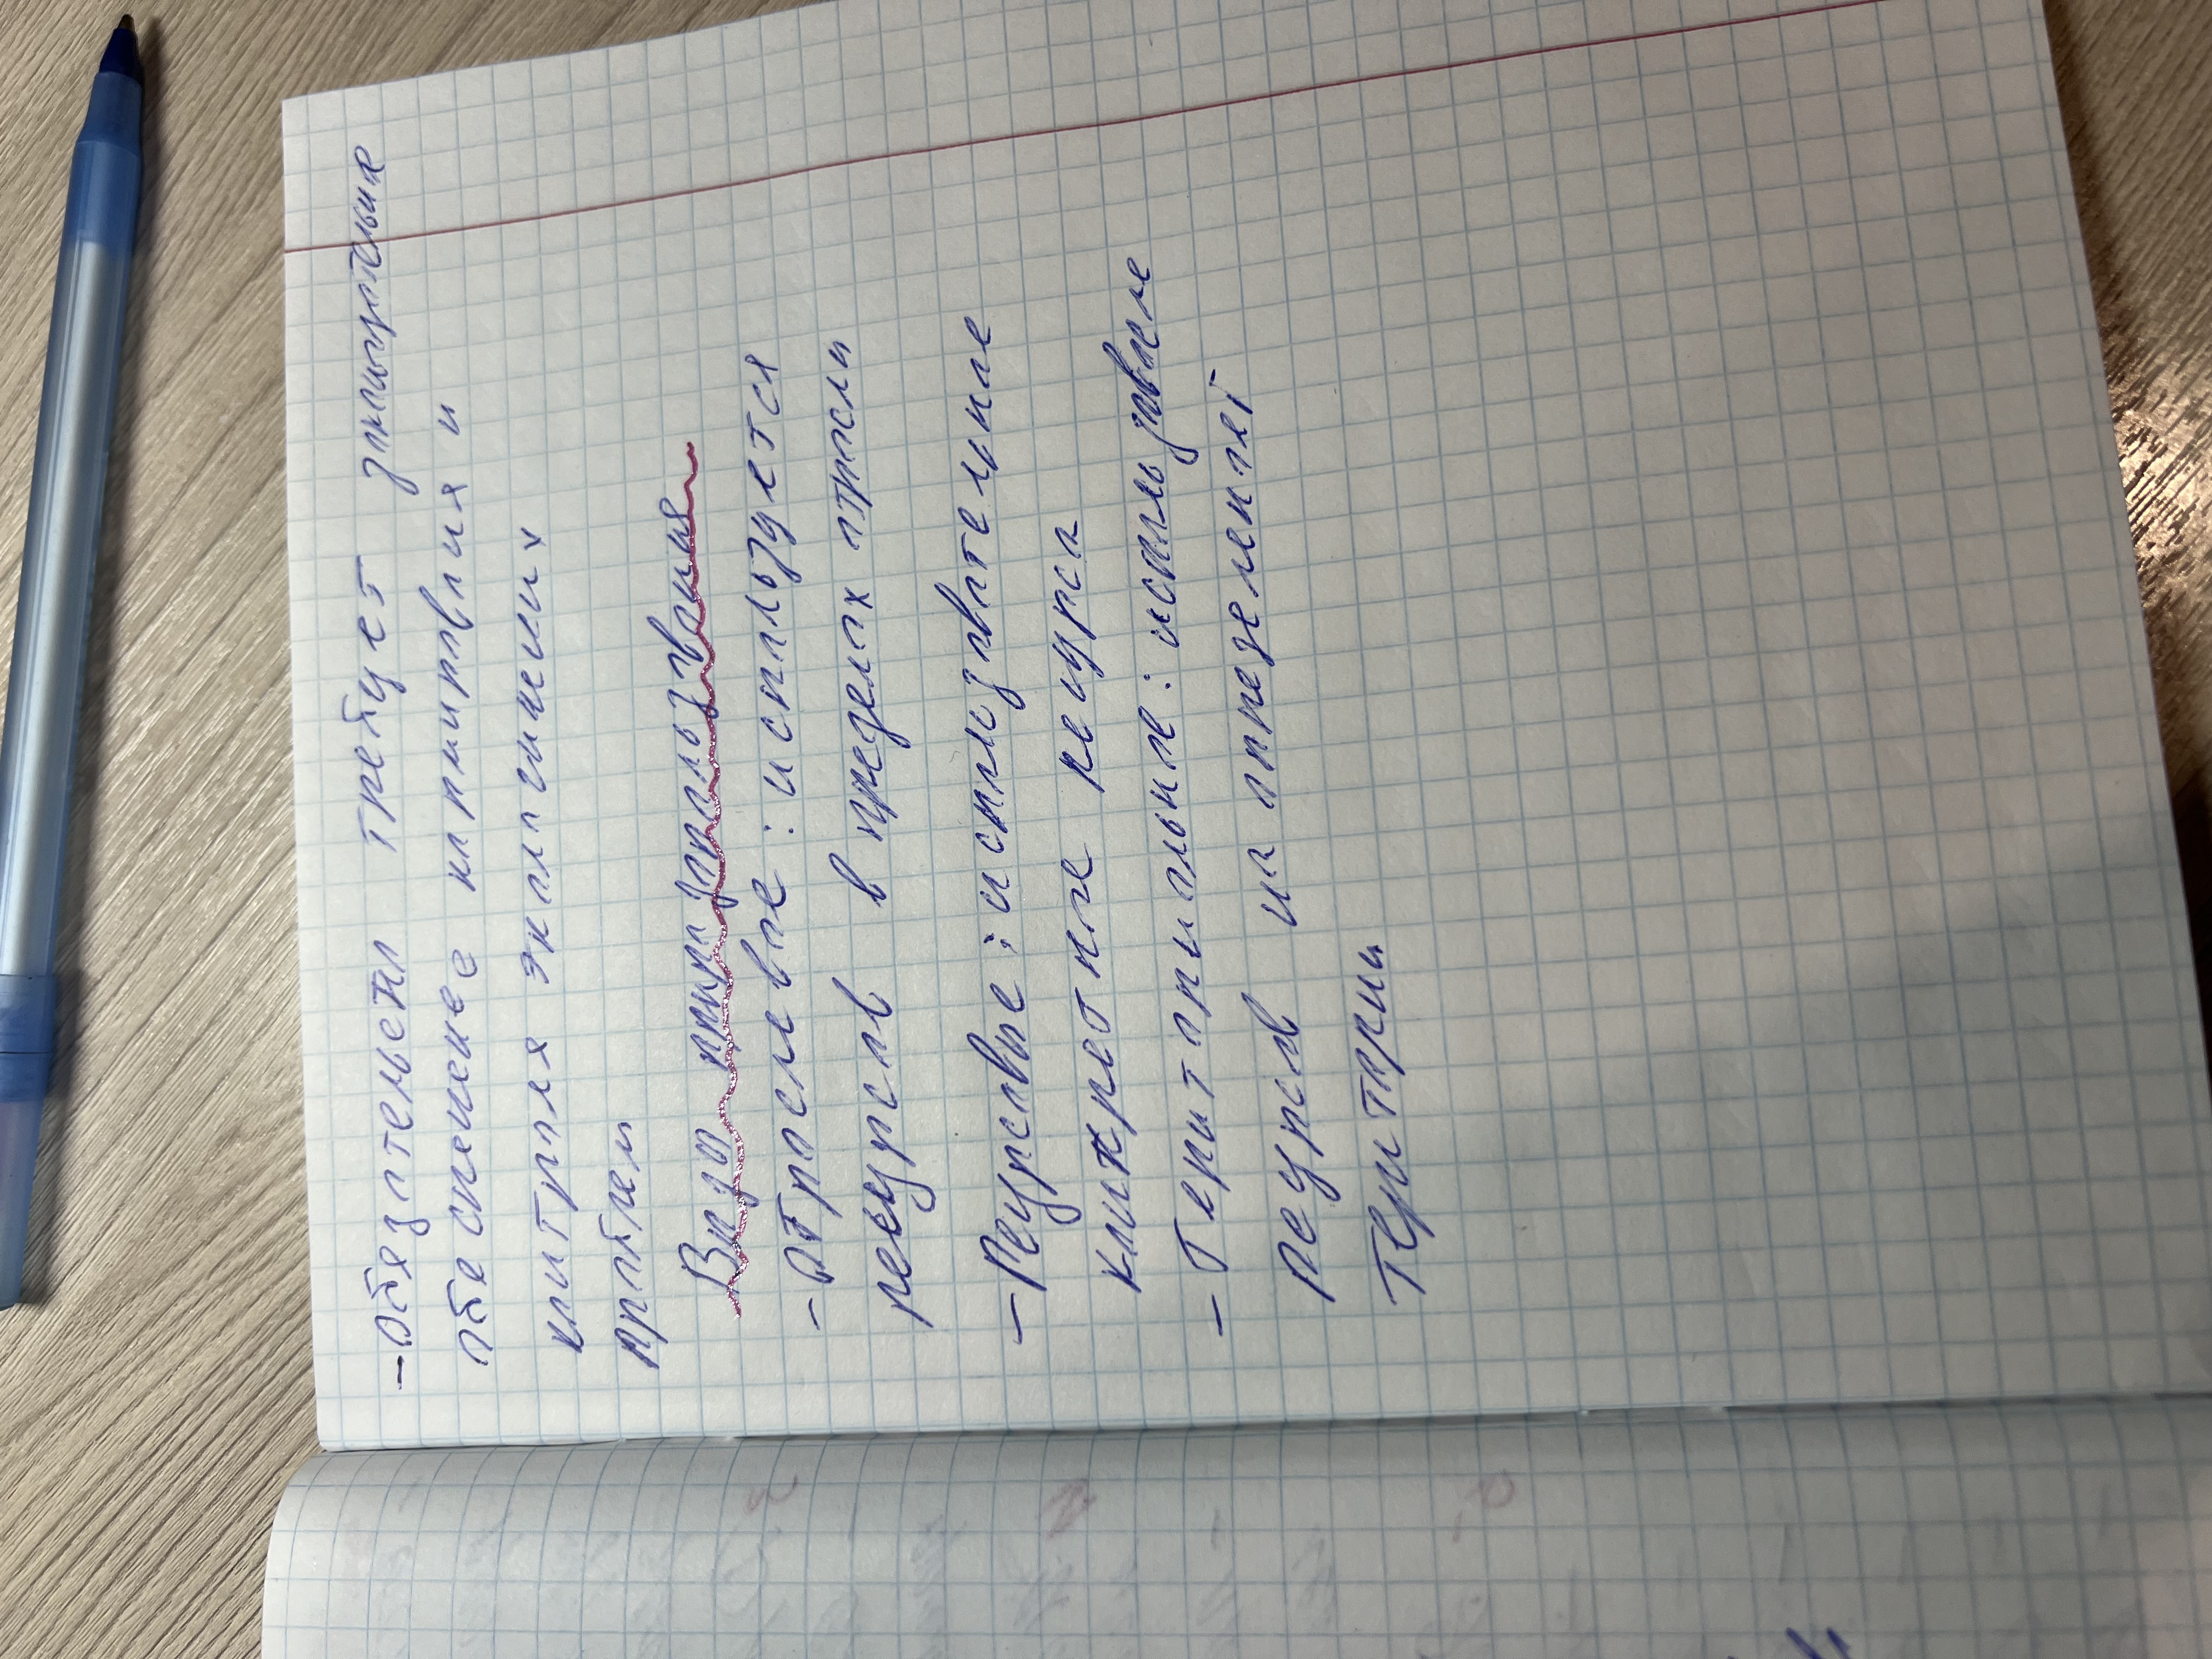 -Обязательно требует законодательния
обеспичение кормировния и
контроля экологичиских
проблем
Вид природопользования
-Отрослевое: используется
ресурсов в пределах отросли
-Ресурсовые: использовательное
конкретное ресурса
-Територильное: использовние
Ресурсов на определеной
Територии